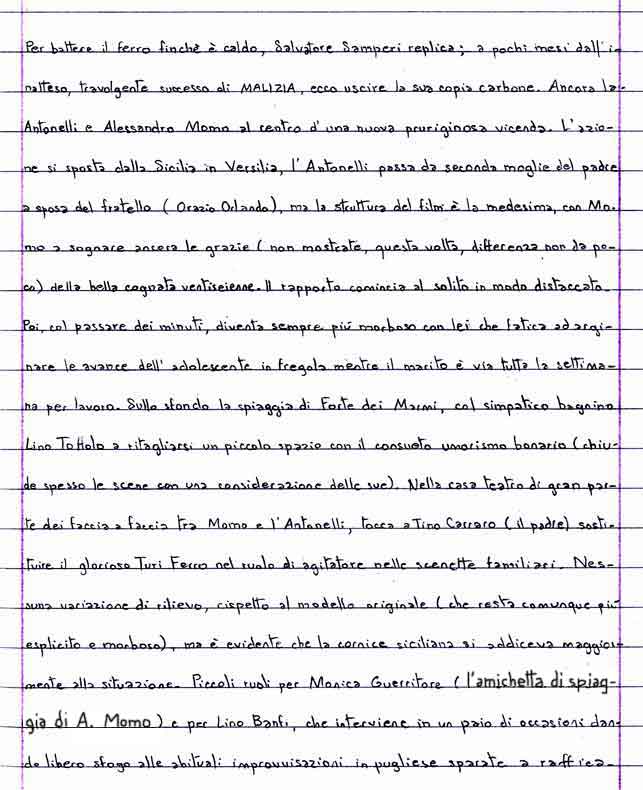 Per battere il ferro finchè è caldo, Salvatore Samperi replica; a pochi mesi dall'i-
natteso, travolgente successo di MALIZIA, ecco uscire la sua copia carbone. Ancora la
Antonelli e Alessandro Momo al centro d'una nuova pruriginosa vicenda. L'azio-
ne si sposta dalla Sicilia in Versilia, l'Antonelli passa da seconda moglie del padre
a sposa del fratello (Orazio Orlando), ma la struttura del film è la medesima, con Mo-
mo a sognare ancora le grazie (non mostrate, questa volta, differenza non da po-
co) della bella cognata ventiseienne. Il rapporto comincia al solito in modo distaccato.
Poi, col passare dei minuti, diventa sempre più morboso con lei che fatica ad argi-
nare le avance dell'adolescente in fregola mentre il marito è via tutta la settima-
na per lavoro. Sullo sfondo la spiaggia di Forte dei Marmi, col simpatico bagnino
Lino Toffolo a ritagliarsi un piccolo spazio con il consueto umorismo bonario (chiu-
de spesso le scene con una considerazione delle sue). Nella casa teatro di gran par-
te dei faccia a faccia tra Momo e l'Antonelli, tocca a Tino Carraro (il padre) sosti-
tuire il glorioso Turi Ferro nel ruolo di agitatore nelle scenette familiari. Nes-
suna variazione di rilievo, rispetto al modello originale (che resta comunque più
esplicito e morboso), ma è evidente che la cornice siciliana si addiceva maggior-
mente alla situazione. Piccoli ruoli per Monica Guerritore (l'amichetta di spiag-
gia di A. Momo) e per Lino Banfi, che interviene in un paio di occasioni dan-
do libero sfogo alle abituali improvvisazioni in pugliese sparate a raffica.